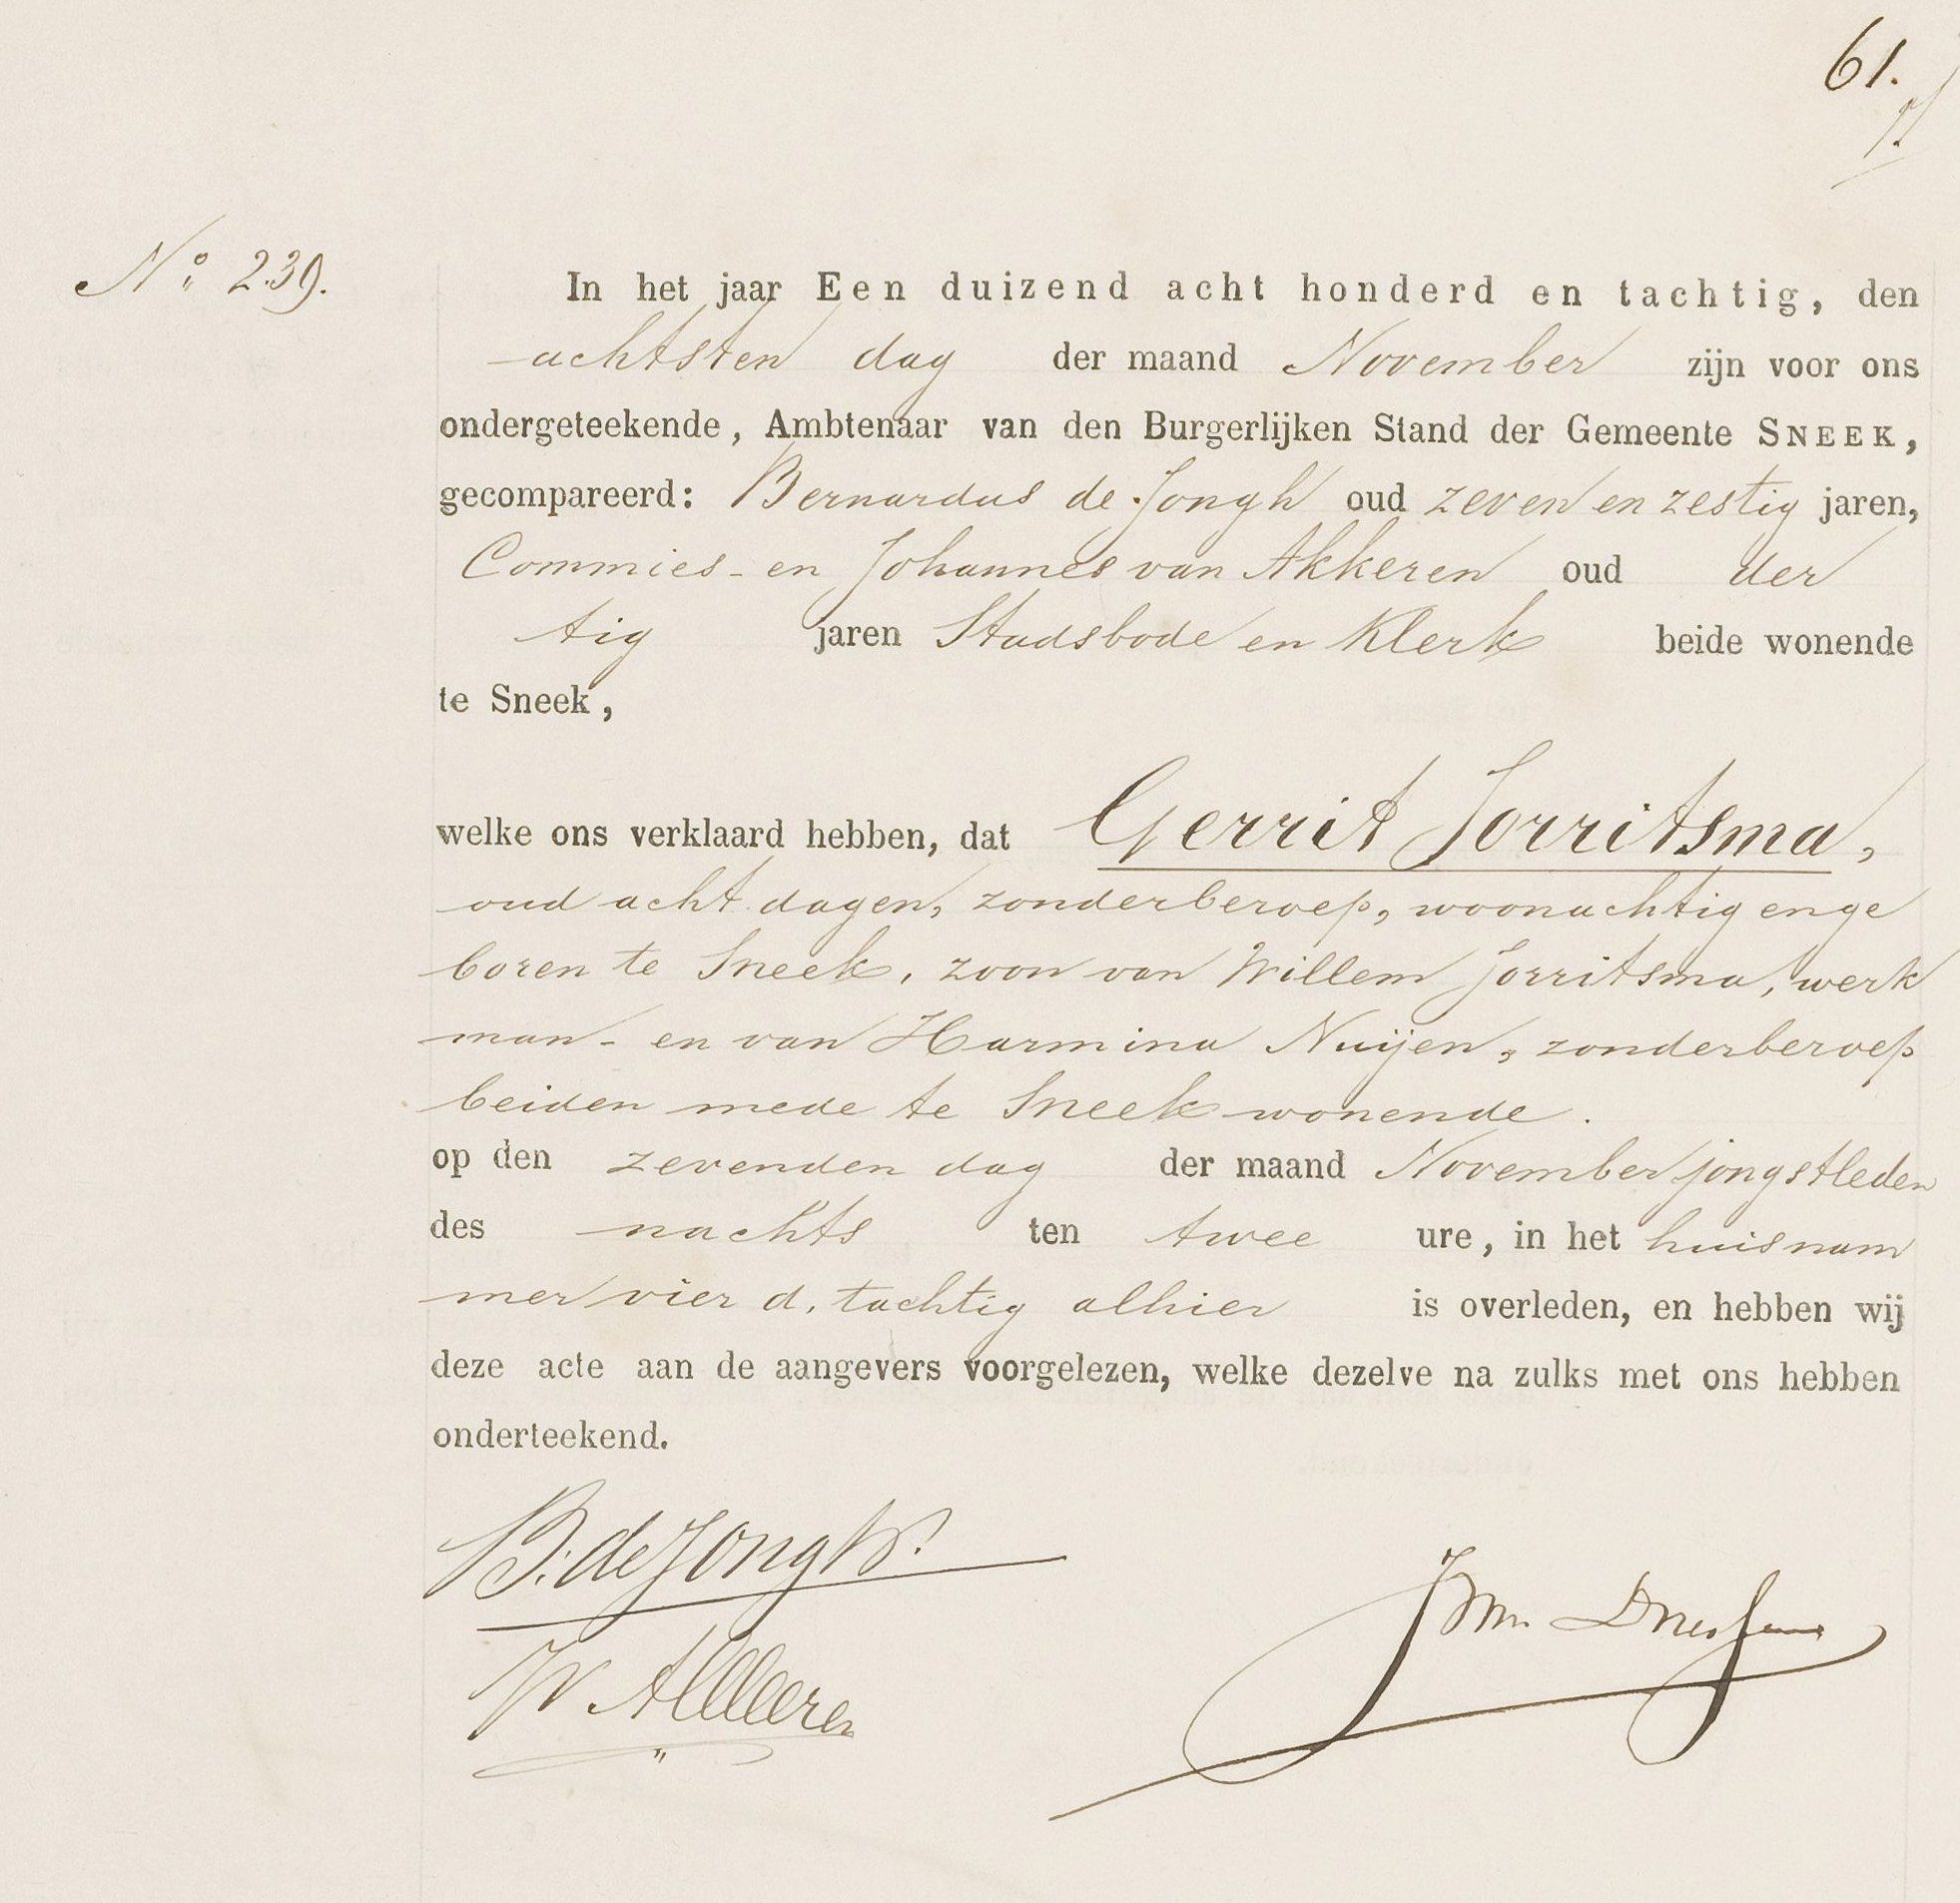 61.
No. 239.
In het jaar Een duizend acht honderd en tachtig, den
achtsten dag der maand November zijn voor ons
ondergeteekende, Ambtenaar van den Burgerlijken Stand der Gemeente SNEEK,
gecompareerd: Bernardus de Jongh oud zeven en zestig jaren,
Commies - en Johannes van Akkeren oud der
tig jaren Stadsbode en Klerk beide wonende
te Sneek,
welke ons verklaard hebben, dat Gerrit Jorritsma,
oud acht dagen, zonder beroep, woonachtig en ge
boren te Sneek, zoon van Willem Jorritsma, werk
man - en van Harmina Nuijen, zonder beroep
beiden mede te Sneek wonende.
op den zevenden dag der maand November jongstleden
des nachts ten twee ure, in het huis num
mer vier d. tachtig alhier is overleden, en hebben wij
deze acte aan de aangevers voorgelezen, welke dezelve na zulks met ons hebben
onderteekend.
B. de Jongh.
JV Akkeren